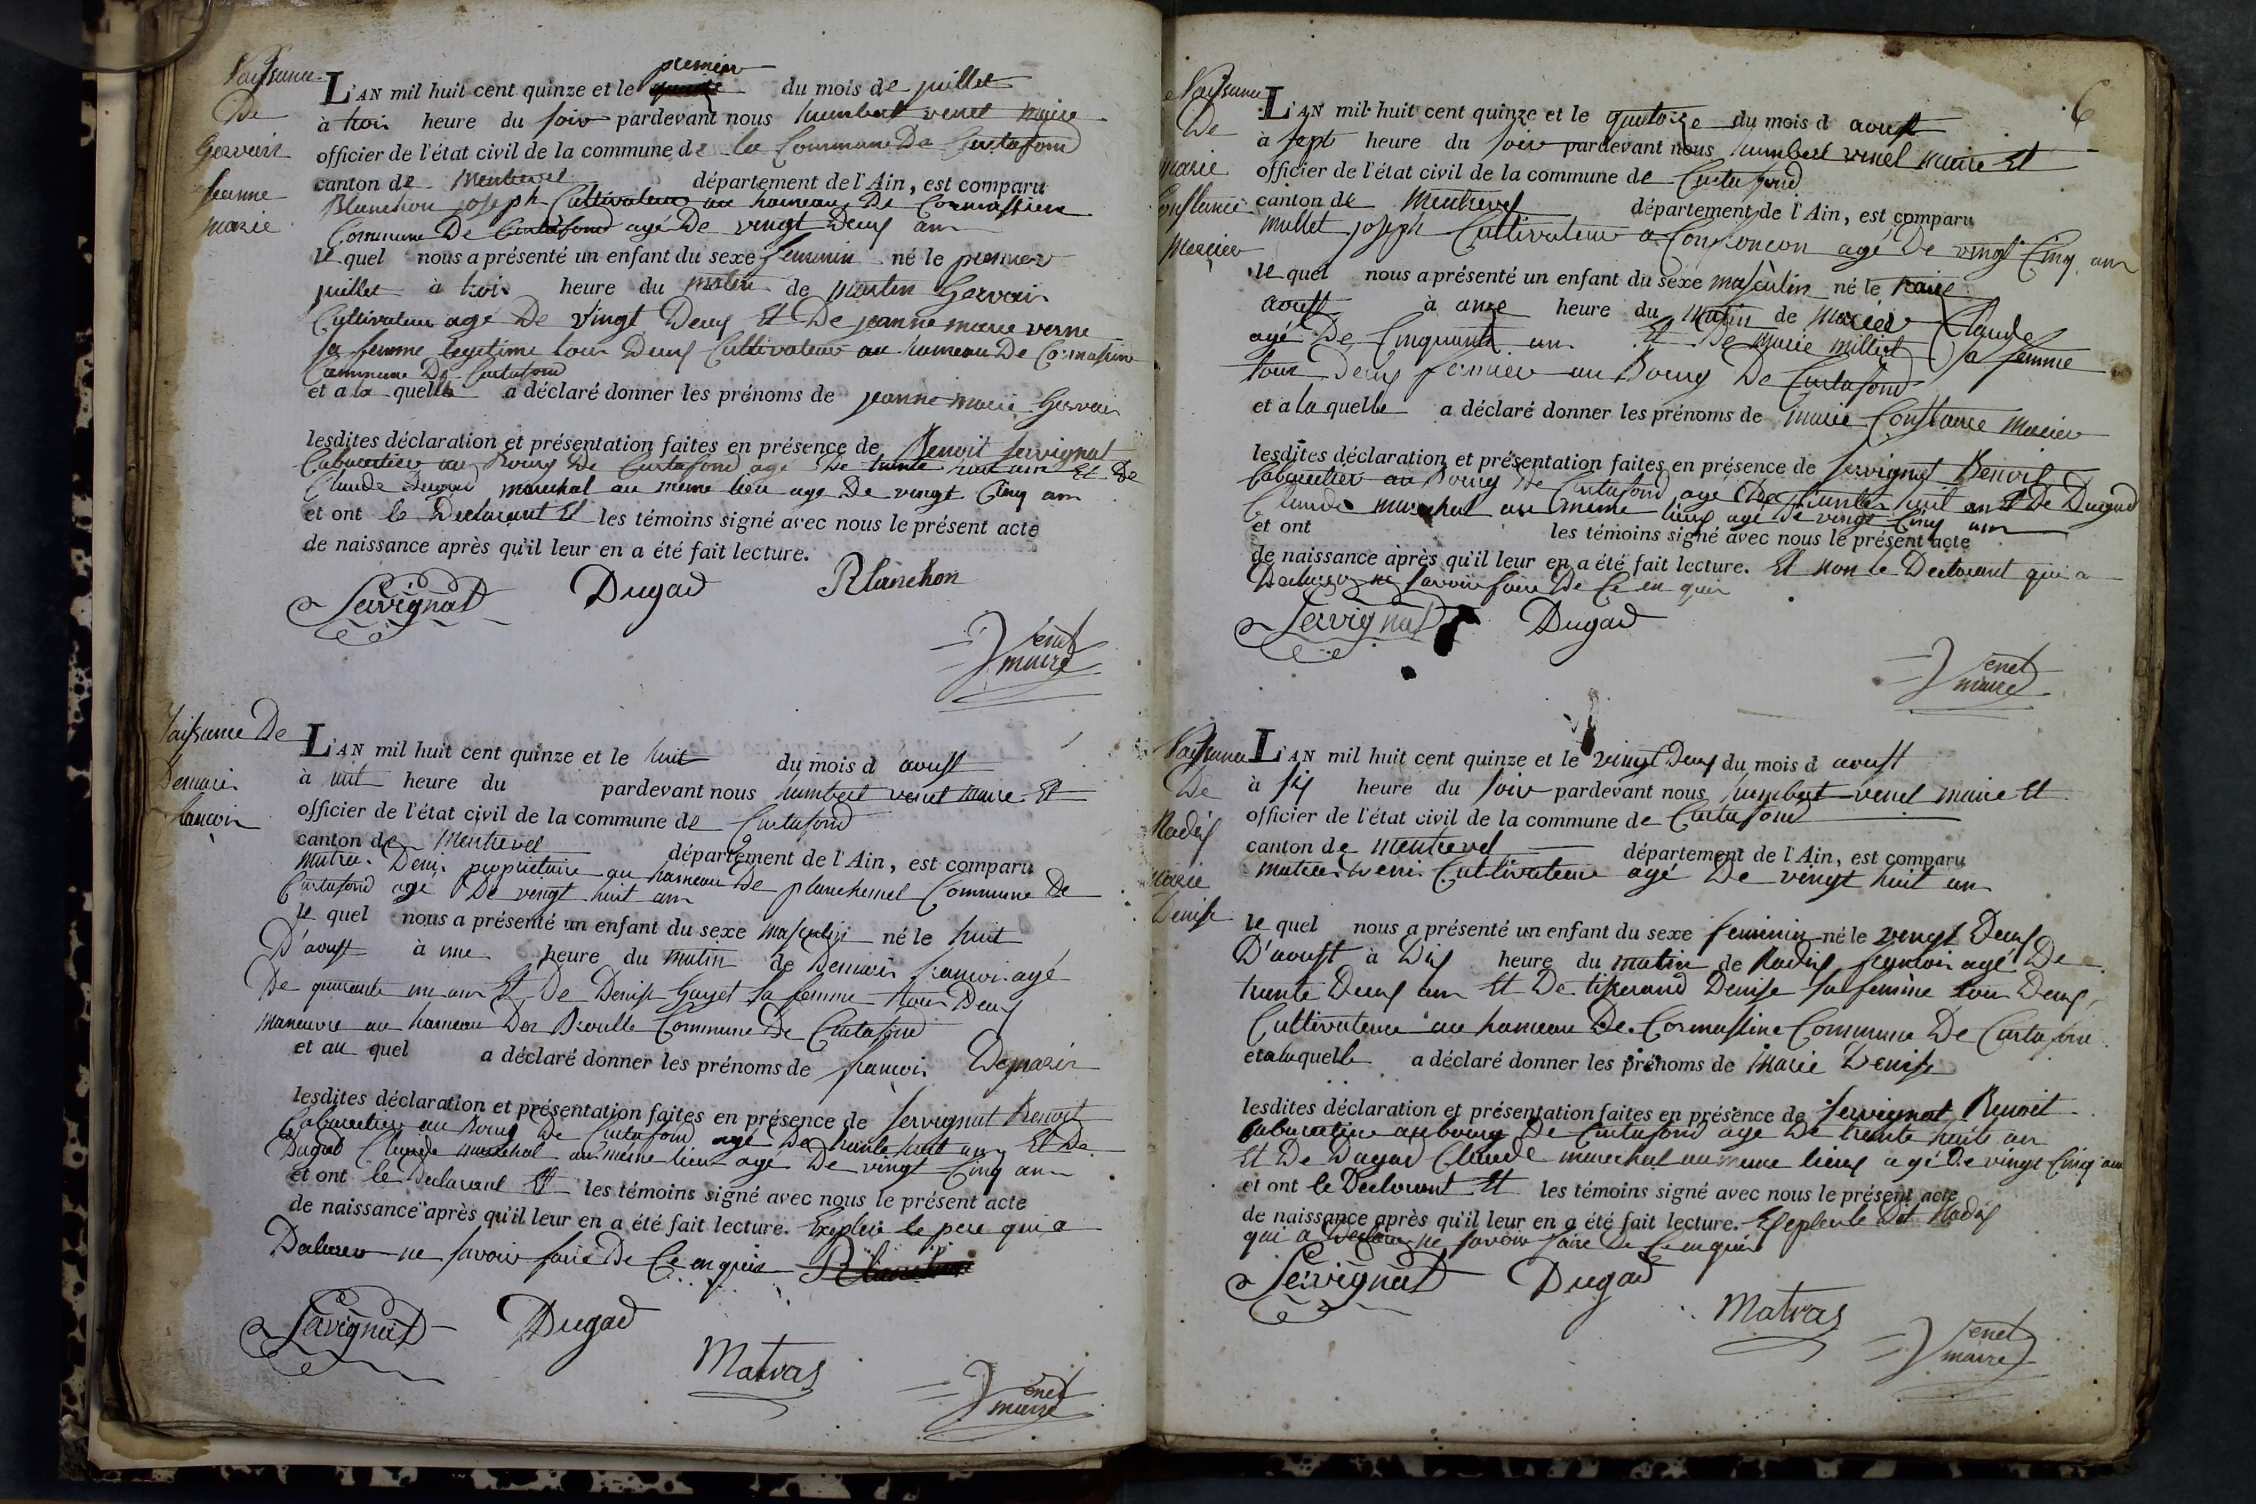 Naissance
De
Gervais
Jeanne
marie
L'AN mil huit cent quinze et le premier du mois de juillet
à troi heure du soir pardevant nous humbert venet maire
officier de l'état civil de la commune de la Commune De Curtafond
canton de Montrevel département de l'Ain, est comparu
Blanchon joseph Cultivateur au hameau De Cormassien
Commune De Curtafond agé De vingt Deux ans
le quel nous a présenté un enfant du sexe feminin né le premier
juillet à troi heure du matin de Martin Gervais
Cultivateur agé De vingt Deux Et De jeanne marie verne
sa femme legitime tour Deux Cultivateur au hameau De Cormassien
Commune De Curtafond
et a la quelle a déclaré donner les prénoms de jeanne marie Gervais
lesdites déclaration et présentation faites en présence de Benoit Servignat
Cabaretier au Bourg De Curtafond agé De trente huit ans Et De
Claude Dugad marechal au meme lieu age De vingt Cinq ans
et ont le Declarant Et les témoins signé avec nous le présent acte
de naissance après qu'il leur en a été fait lecture.
Servignat Dugad Blanchon
Venet
maire
Naissance De
Demarin
francoin
L'AN mil huit cent quinze et le huit du mois d aoust
à huit heure du pardevant nous humbert venet maire Et
officier de l'état civil de la commune de Curtafond
canton de Montrevel département de l'Ain, est comparu
matra Deni propriétaire au hameau De planchemel Commune De
Curtafond agé De vingt huit ans
le quel nous a présenté un enfant du sexe masculin né le huit
D'aoust à une heure du matin de Demarin francoi agé
De quarante un ans Et De Denise Gayet sa femme tour Deux
maneuvre au hameau Des Broulle Commune De Curtafond
et au quel a déclaré donner les prénoms de francoi Demarin
lesdites déclaration et présentation faites en présence de Servignat Benoit
Cabaretier au Bourg De Curtafond agé De trente huit ans Et De
Dugad Claude marechal au meme lieu agé De vingt Cinq ans
et ont le Declarant Et les témoins signé avec nous le présent acte
de naissance après qu'il leur en a été fait lecture. Exepter le pere qui a
Declarer ne savoir faire De Ce enquis
Servignat Dugad
Matras
Venet
maire
6
Naissance
De
marie
Constance
Mercier
L'AN mil huit cent quinze et le quatorze du mois d aoust
à sept heure du soir pardevant nous humbert venet maire Et
officier de l'état civil de la commune de Curtafond
canton de Montrevel département de l'Ain, est comparu
millet joseph Cultivateur a Confrancon agé De vingt Cinq ans
le quel nous a présenté un enfant du sexe masculin né le traize
aoust à onze heure du matin de mercier Claude
agé De Cinquante un Et De marie millet sa femme
tour Deux fermier au Bourg De Curtafond
et a la quelle a déclaré donner les prénoms de marie Constance mercier
lesdites déclaration et présentation faites en présence de Servignat Benoit
Cabaretier au Bourg De Curtafond agé De trente huit an Et De Dugad
Claude marechal au meme lieux agé De vingt Cinq ans
et ont les témoins signé avec nous le présent acte
de naissance après qu'il leur en a été fait lecture. Et non le Declarant qui a
Declarer ne savoir faire De Ce en quis
Servignat Dugad
Venet
maire
Naissance
De
Nadix
Marie
Denise
L'AN mil huit cent quinze et le vingt Deux du mois d aoust
à six heure du soir pardevant nous humbert venet maire Et
officier de l'état civil de la commune de Curtafond
canton de montrevel département de l'Ain, est comparu
matra Deni Cultivateur agé De vingt huit ans
le quel nous a présenté un enfant du sexe feminin né le vingt Deux
D'aoust à Dix heure du matin de Nadix francoi agé De
trente Deux ans Et De tisserand Denise sa femme tour Deux
Cultivateur au hameau De Cormassine Commune De Curtafond
et a la quelle a déclaré donner les prénoms de Marie Denise
lesdites déclaration et présentation faites en présence de Servignat Benoit
Cabaretier au bourg De Curtafond agé De trente huit an
Et De Dugad Claude marechal au meme lieux agé De vingt Cinq ans
et ont le Declarant Et les témoins signé avec nous le présent acte
de naissance après qu'il leur en a été fait lecture. Exepter le Dit Nadix
qui a Declarer ne savoir faire De Ce enquis
Servignat Dugad
Matras
Venet
maire